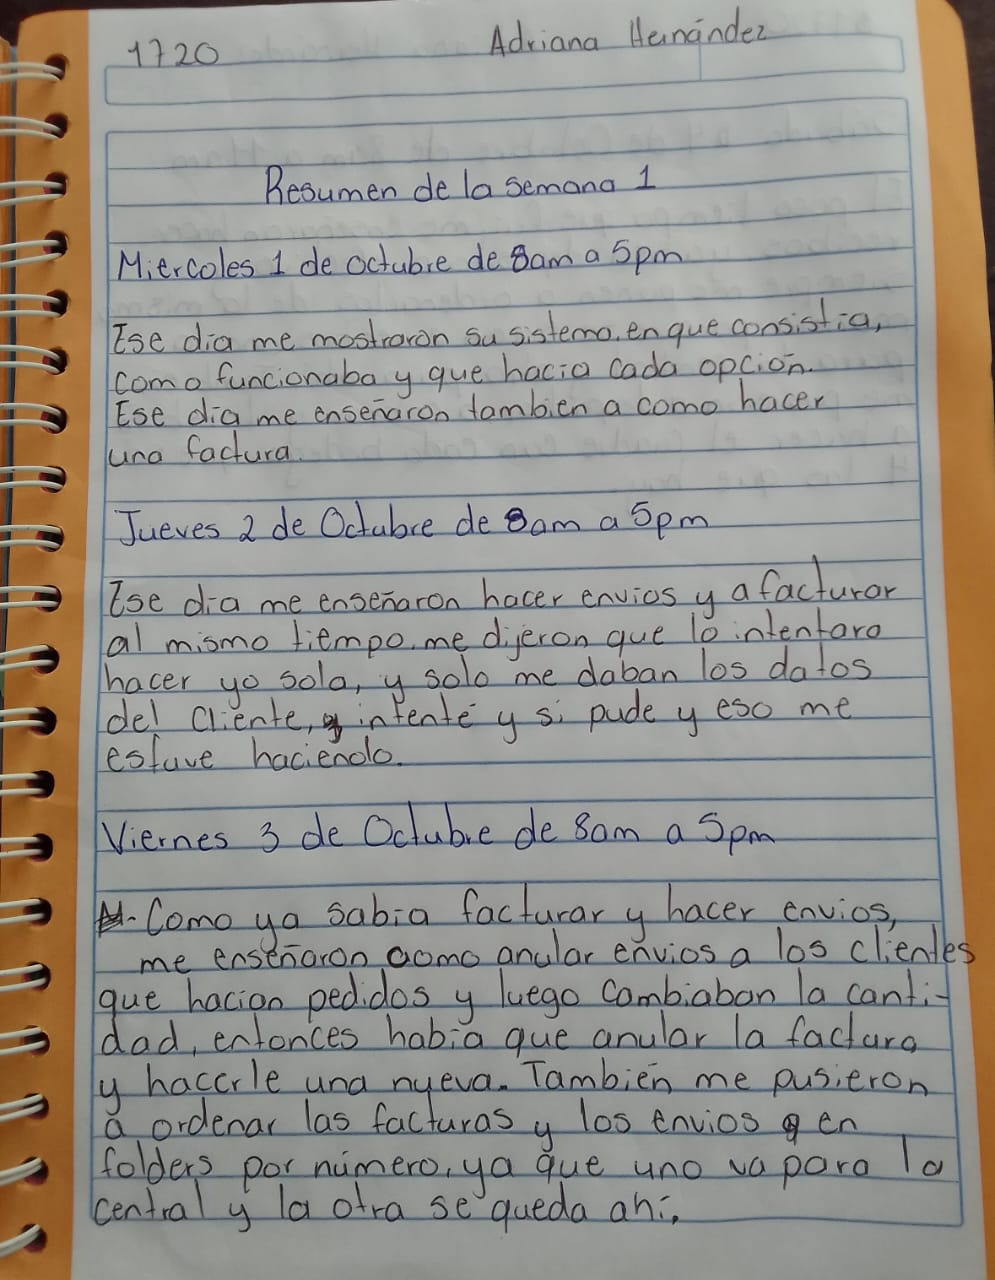 1720
Adriana Hernández
Resumen de la semana 1
Miercoles 1 de octubre de 8am a 5pm
Ese dia me mostraron su sistema, en que consistia,
como funcionaba y que hacia cada opción.
Ese dia me enseñaron tambien a como hacer
una factura.
Jueves 2 de Octubre de 8am a 5pm
Ese dia me enseñaron hacer envios y a facturar
al mismo tiempo, me dijeron que lo intentara
hacer yo sola, y solo me daban los datos
del cliente, intenté y si pude y eso me
estuve haciendo.
Viernes 3 de Octubre de 8am a 5pm
Como ya sabia facturar y hacer envios,
me enseñaron como anular envios a los clientes
que hacian pedidos y luego cambiaban la canti-
dad, entonces habia que anular la factura
y hacerle una nueva. También me pusieron
a ordenar las facturas y los envios en
folders por número, ya que uno va para la
central y la otra se queda ahi.